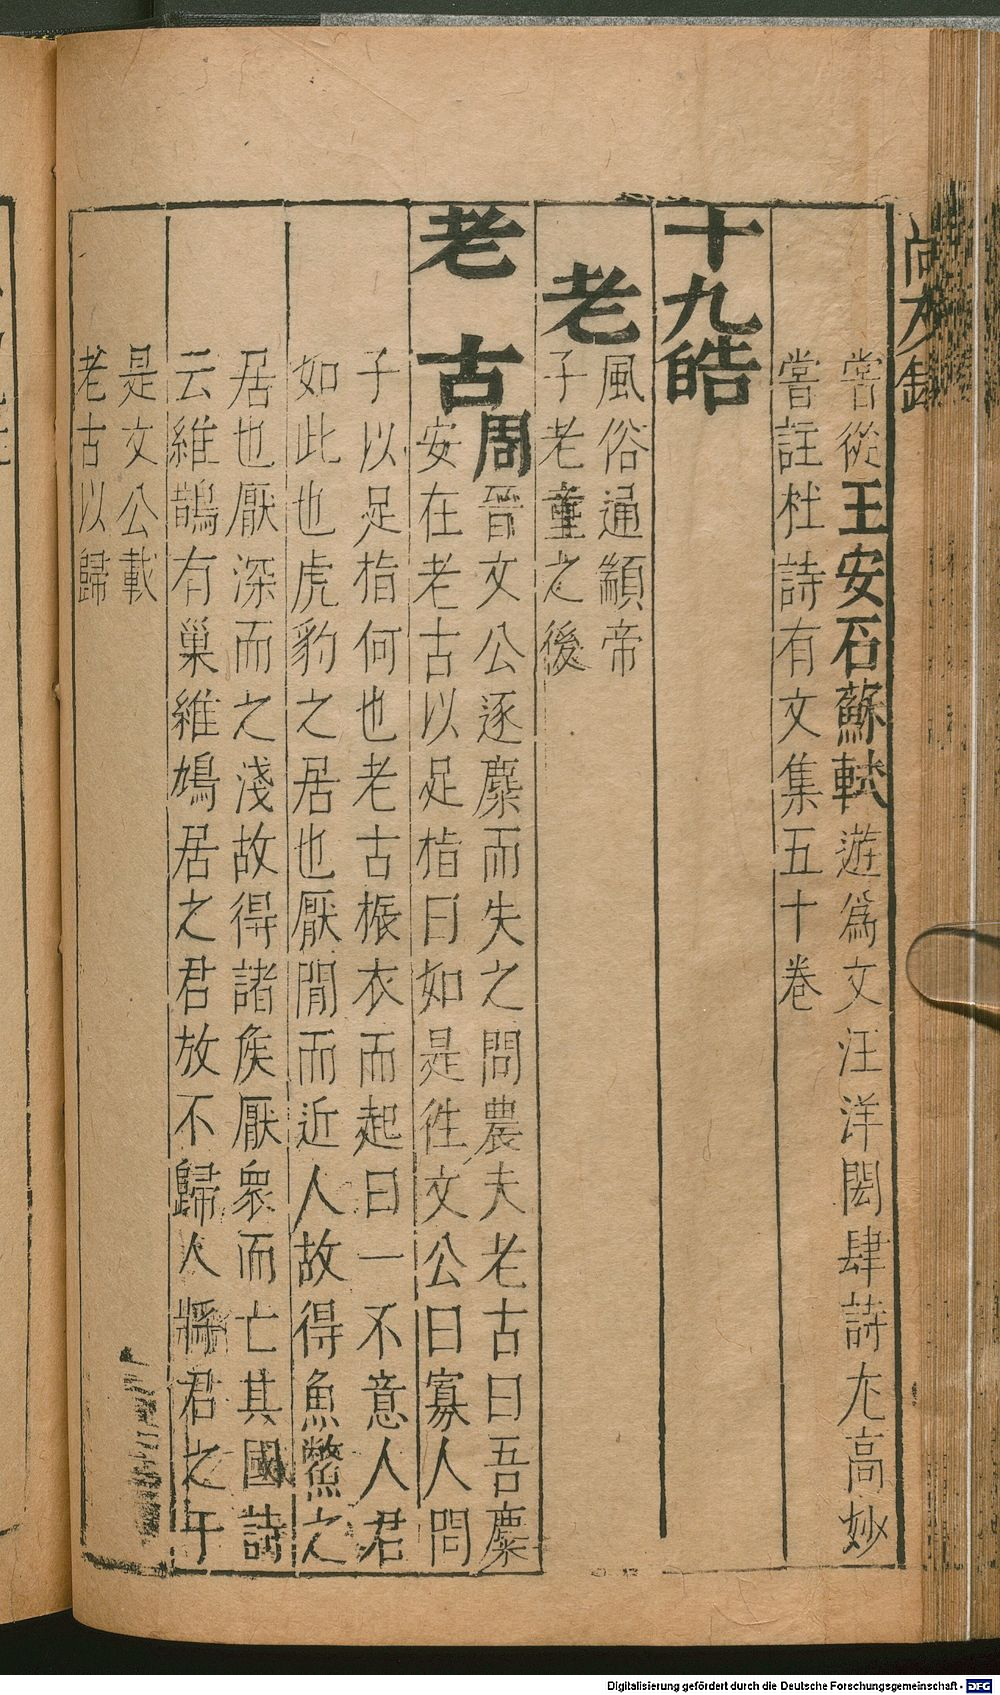 嘗從王安石蘇軾遊爲文汪洋閎肆詩尤高妙
嘗註杜詩有文集五十卷
十九皓
老
風俗通顓帝
子老童之後
老古
周晉文公逐麋而失之問農夫老古曰吾麋
安在老古以足指曰如是徃文公曰寡人問
子以足指何也老古振衣而起曰一不意人君
如此也虎豹之居也厭閒而近人故得魚鱉之
居也厭深而之淺故得諸矦厭衆而亡其國詩
云維鵲有巢維鳩居之君放不歸人將君之于
是文公載
老古以歸
Digitalisierung gefördert durch die Deutsche Forschungsgemeinschaft - DFG